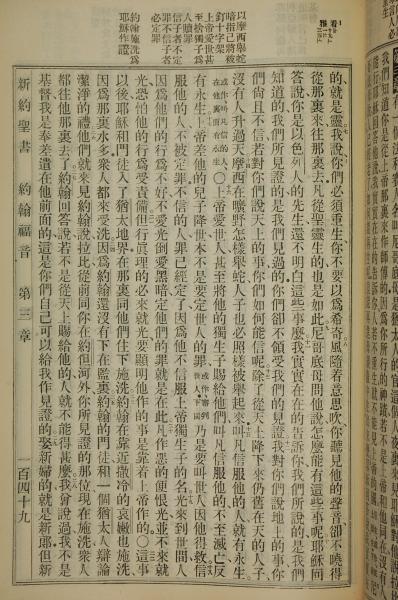 看
以摩西舉蛇
暗指己將被
釘十字架
上帝愛世甚
至捨獨子爲
人贖罪
信子者不定
罪不信子者
必定罪
約翰施洗爲
耶穌作證
的、就是靈、我說、你們必須重生、你不要以爲希奇、風隨着意思吹、你聽見他的聲音、卻不曉得
從那裏來、往那裏去、凡從聖靈生的、也是如此、尼哥底母問他說、怎麽能有這些事呢、耶穌回
答說、你是以色列人的先生、還不明白這些事麽、我實實在在的告訴你、我們所說的、是我們
知道的、我們所見證的、是我們見過的、你們卻不領受我們的見證、我對你們說地上的事、你
們尚且不信、若對你們說天上的事、你們如何能信呢、除了從天上降下來仍舊在天的人子、
沒有人升過天、摩西在曠野怎樣舉蛇、人子也必照樣被舉起來、叫凡信服他的人、就有永生、
在他裏面有永生○上帝愛世人、甚至將他的獨生子賜給他們、叫凡信服他的、不至滅亡、反
有永生、上帝差他的兒子降世、本不是要定世人的罪、或作審判世人下同乃是要叫世人因他得救、信
服他的人、不被定罪、不信的人、罪已經定了、因爲他不信服上帝獨生子的名、光來到世間、人
因爲他們的行爲不好、不愛光倒愛黑暗、定他們的罪就是在此、凡作惡的便恨光、並不來就
光、恐怕他的行爲受責備、但行眞理的必來就光、要顯明他作的事、是靠着上帝作的、○這事
以後、耶穌和門徒入了猶太地界、在那裏同他們住下施洗、約翰在靠近撒冷的哀嫩也施洗、
因爲那裏水多、衆人都來受洗、因爲約翰還沒有下在監裏、約翰的門徒和一個猶太人辯論
潔淨的禮、他們就來見約翰說、拉比、從前同你在約但河外、你所見證的那位、現在施洗、衆人
都往他那裏去了、約翰回答說、若不是從天上賜給他的、人就不能得甚麽、我曾說過、我不是
基督、我是奉差遣在他前面的、這是你們自己可以給我作見證的、娶新婦的就是新郎、但新
新約聖書 約翰福音 第三章 一百四十九